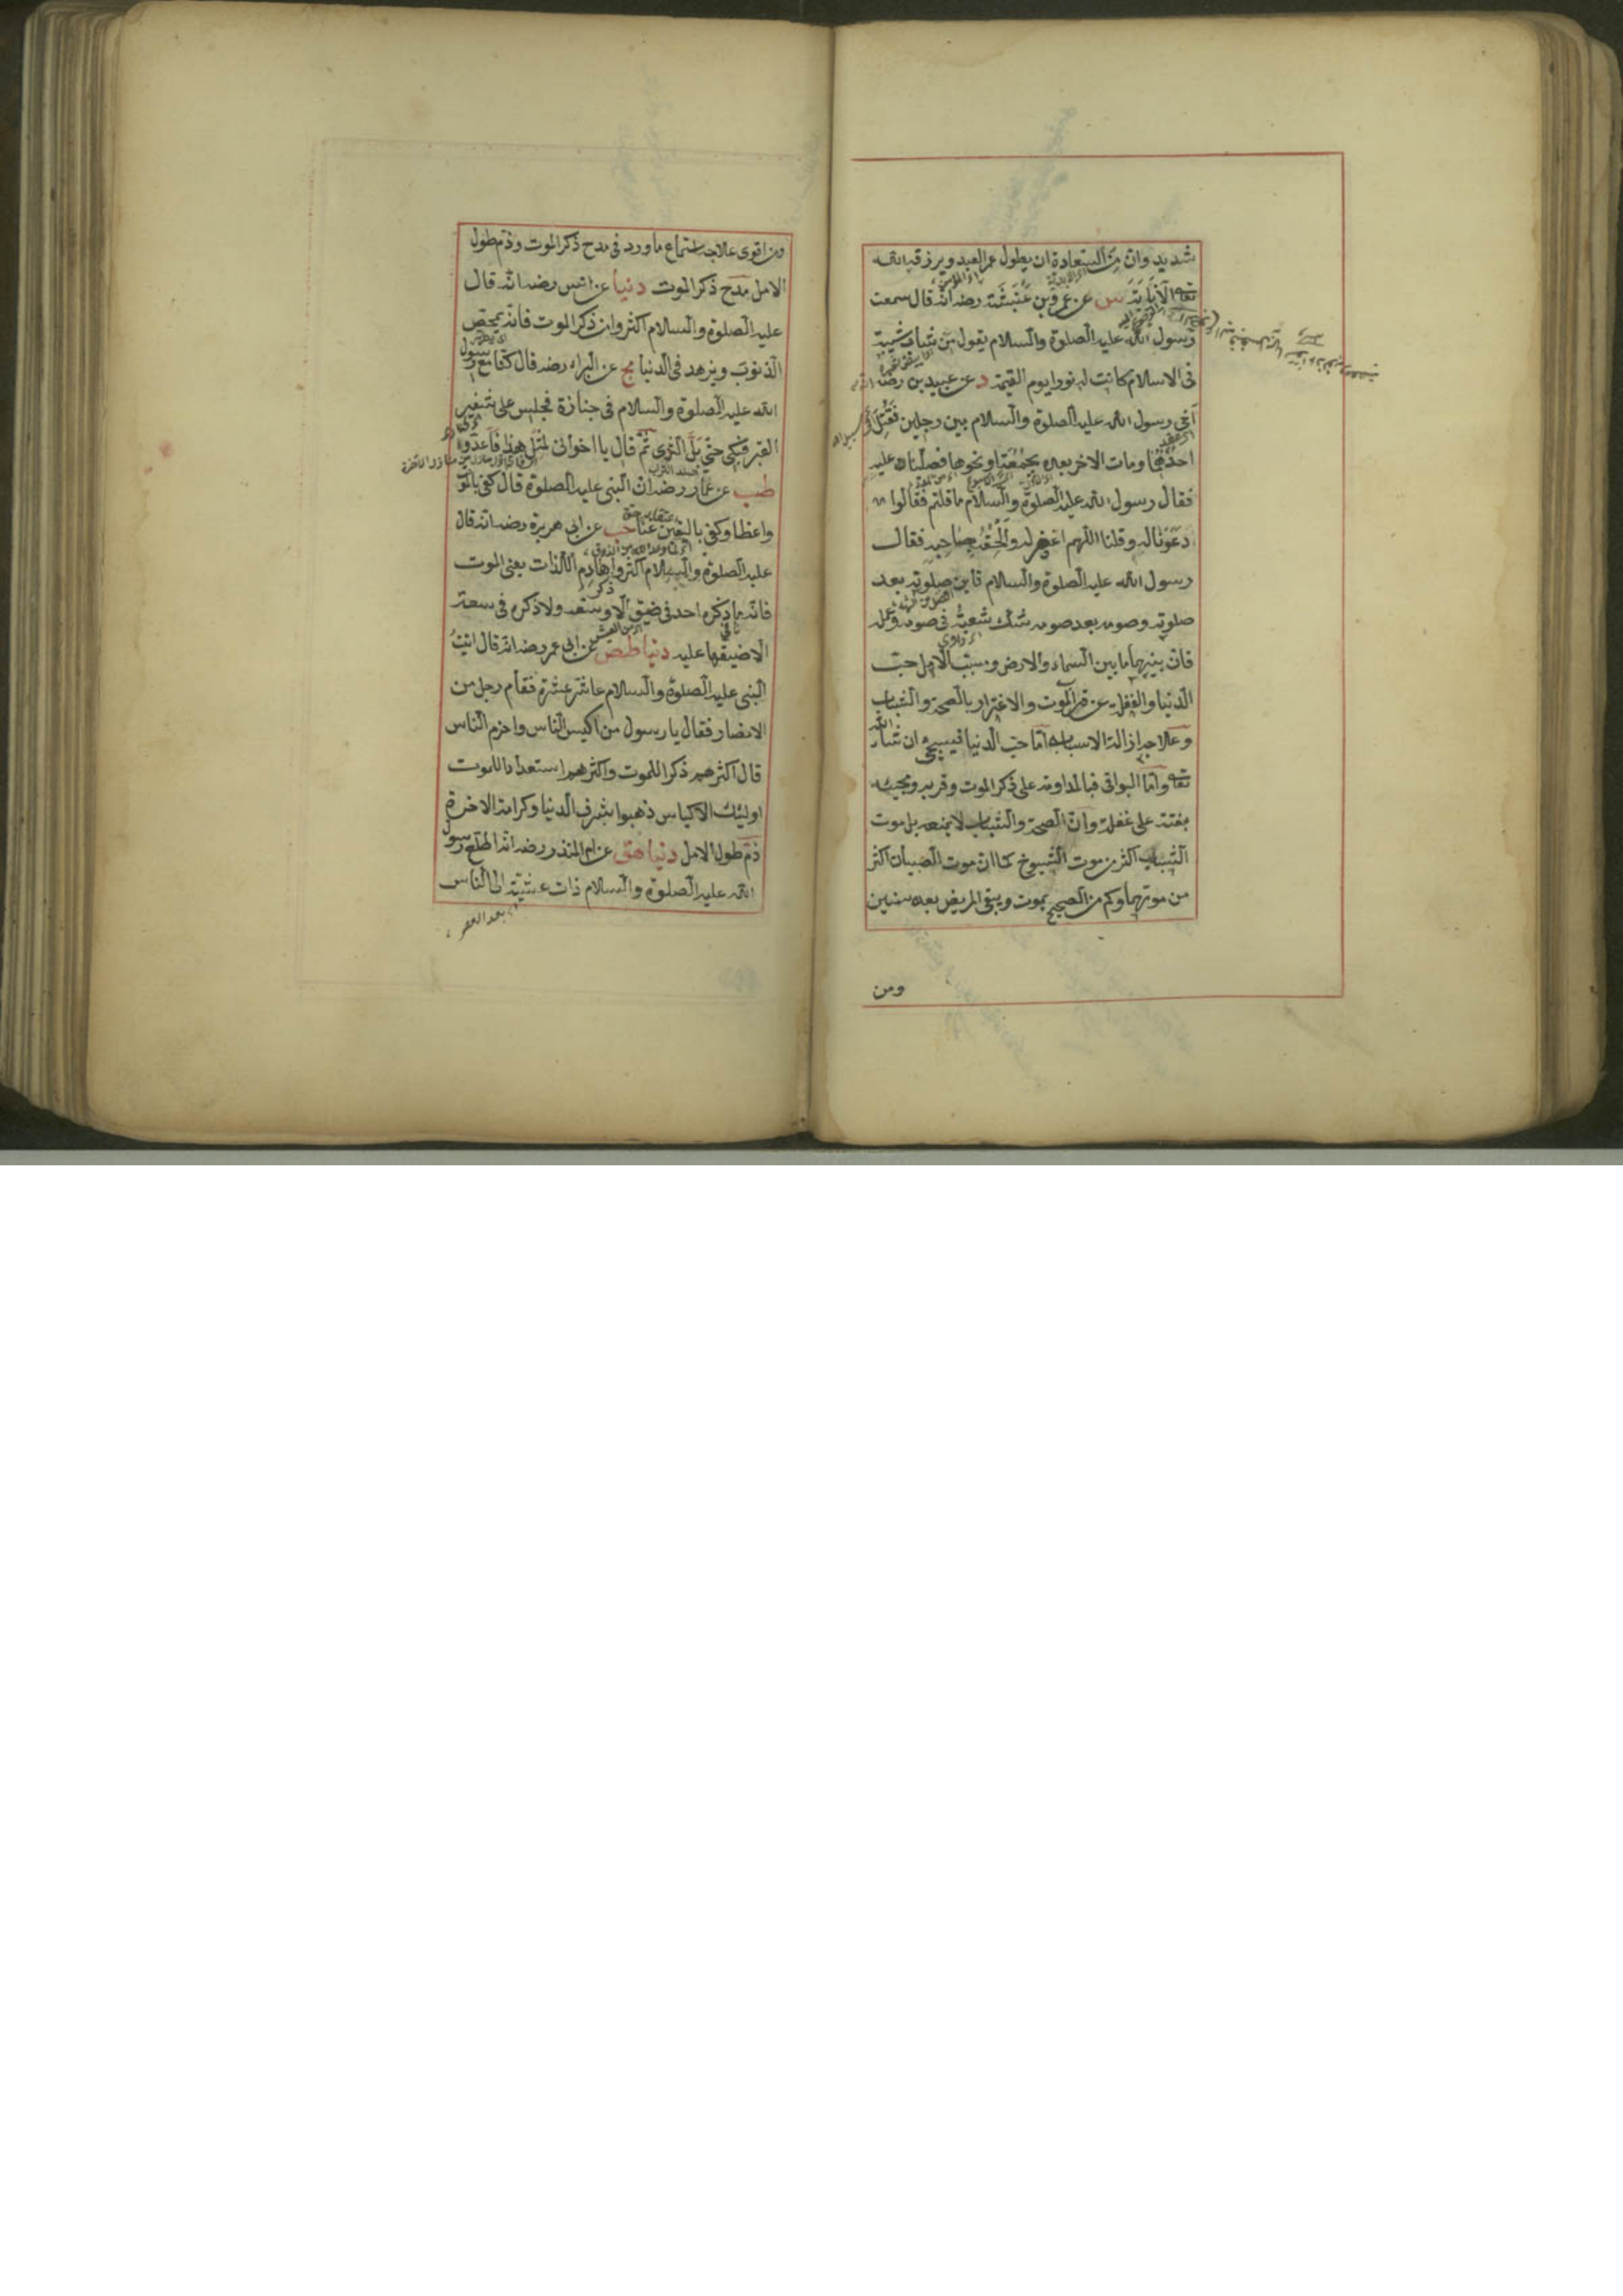 شديد وان من السعادة ان يطول عمر العبد ويرزقه الله
تعالى الانابة س عن عمرو بن عنبسة رضه انه قال سمعت
رسول الله عليه الصلوة والسلام يقول من شاب شيبة
فى الاسلام كانت له نورا يوم القيمة د عن عبيد بن رضه
آخى رسول الله عليه الصلوة والسلام بين رجلين فقتل
احدهما ومات الاخر بعده بجمعة او نحوها فصلينا عليه
فقال رسول الله عليه الصلوة والسلام ما قلتم فقالوا
دعونا له وقلنا اللهم اغفر له والحقه بصاحبه فقال
رسول الله عليه الصلوة والسلام فاين صلوته بعد
صلوته وصومه بعد صومه شك شعبة فى صومه وعمله
فان بينهما ما بين السماء والارض وسبب الامل حب
الدنيا والغفلة عن قرب الموت والاغترار بالصحة والشباب
وعلاجه ازالة الاسباب اما حب الدنيا فسيجئ ان شاء الله
تعالى واما البواقى فبالمداومة على ذكر الموت وقربه ومجيئه
بغتة على غفلة وان الصحة والشباب لا يمنعه بل موت
الشباب اكثر من موت الشيوخ كما ان موت الصبيان اكثر
من موتهما وكم من الصحيح يموت ويبقى المريض بعده سنين
ومن
ومن اقوى علاجه استماع ما ورد فى مدح ذكر الموت وذم طول
الامل مدح ذكر الموت دنيا عن انس رضه انه قال
عليه الصلوة والسلام اكثروا من ذكر الموت فانه يمحص
الذنوب ويزهد فى الدنيا مج عن البراء رضه قال كنا مع رسول
الله عليه الصلوة والسلام فى جنازة فجلس على شفير
القبر فبكى حتى بل الثرى ثم قال يا اخوانى لمثل هذا فاعدوا
طب عن عمار رضه ان النبى عليه الصلوة قال كفى بالموت
واعظا وكفى باليقين غنا حب عن ابى هريرة رضه انه قال
عليه الصلوة والسلام اكثروا ذكر هادم اللذات يعنى الموت
فانه ما ذكره احد فى ضيق الا وسعه ولا ذكره فى سعة
الا ضيقها عليه دنيا طص عن ابى عمر رضه انه قال اتيت
النبى عليه الصلوة والسلام عاشر عشرة فقام رجل من
الانصار فقال يا رسول من اكيس الناس واحزم الناس
قال اكثرهم ذكرا للموت واكثرهم استعدادا للموت
اولئك الاكياس ذهبوا بشرف الدنيا وكرامة الاخرة
ذم طول الامل دنيا هق عن ام المنذر رضه انه اطلع رسول
الله عليه الصلوة والسلام ذات عشية الى الناس
بعد العصر